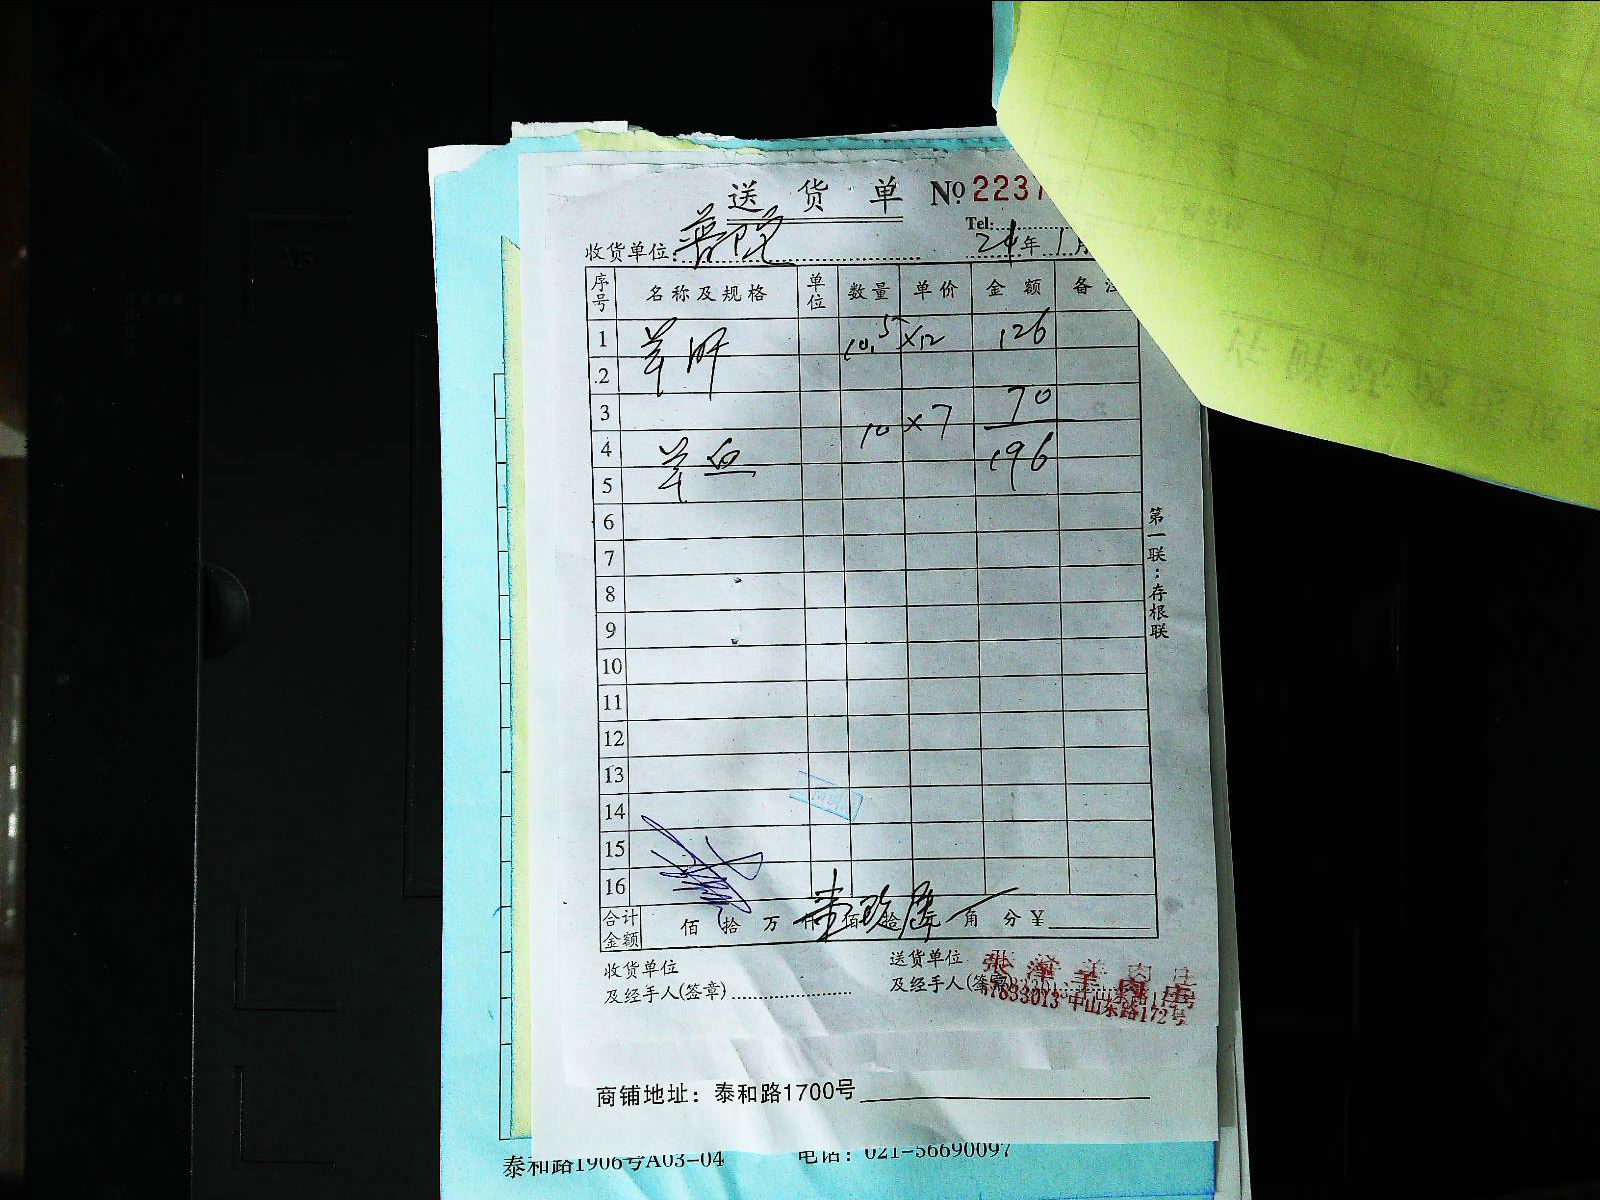 送货单 № 2237
Tel:
收货单位: 24年1月
序号 名称及规格 单位 数量 单价 金额 备注
1 羊肝 10.5 ×12 126
2
3 70
4 羊血 10 ×7 196
5
6
7
8
9
10
11
12
13
14
15
16
合计金额 佰 拾 万 仟 壹佰 玖拾 陆元 角 分 ¥
第一联：存根联
收货单位 送货单位
及经手人(签章) 及经手人(签章)
张泽羊肉庄
57833013 中山东路172号
商铺地址：泰和路1700号
泰和路1906号A03-04 电话：021-56690097